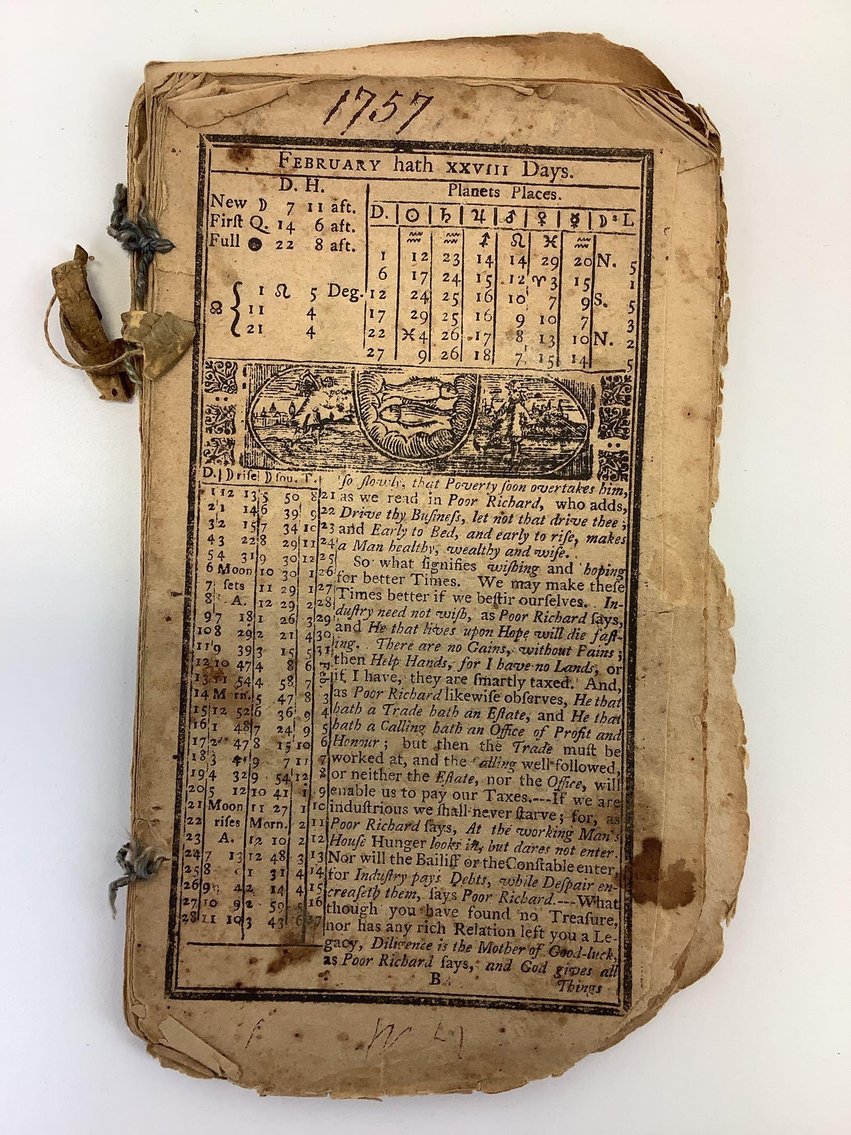 1757
FEBRUARY hath XXVIII Days.
D. H.
New ☽ 7 11 aft.
Firſt Q. 14 6 aft.
Full ● 22 8 aft.
☊ { 1 ♌ 5 Deg.
11 4
21 4
Planets Places.
D. ☉ ♄ ♃ ♂ ♀ ☿ ☽'s L
♒ ♒ ♐ ♌ ♓ ♒
1 12 23 14 14 29 20 N. 5
6 17 24 15 12 ♈3 15 1
12 24 25 16 10 7 9 S. 5
17 29 25 16 9 10 7 3
22 ♓4 26 17 8 13 10 N. 2
27 9 26 18 7 15 14 5
D. ☽ riſe ☽ ſou. T.
1 12 13 5 50 8 21
2 1 14 6 39 9 22
3 2 15 7 34 10 23
4 3 22 8 29 11 24
5 4 31 9 30 12 25
6 Moon 10 30 1 26
7 ſets 11 29 1 27
8 A. 12 29 2 28
9 7 18 1 26 3 29
10 8 29 2 21 4 30
11 9 39 3 15 5 31
12 10 47 4 8 6
13 11 54 4 58 7
14 Morn. 5 47 8 3
15 12 52 6 36 9 4
16 1 48 7 24 9 5
17 2 47 8 15 10 6
18 3 9 7 11 7
19 4 32 9 54 12 8
20 5 12 10 41 1 9
21 Moon 11 27 1 10
22 riſes Morn. 2 11
23 A. 12 10 2 12
24 7 13 12 48 3 13
25 8 1 31 4 14
26 9 42 2 14 4 15
27 10 2 59 5 16
28 11 10 3 43 6 17
ſo ſlowly, that Poverty ſoon overtakes him,
as we read in Poor Richard, who adds,
Drive thy Buſineſs, let not that drive thee;
and Early to Bed, and early to riſe, makes
a Man healthy, wealthy and wiſe.
So what ſignifies wiſhing and hoping
for better Times. We may make theſe
Times better if we beſtir ourſelves. In-
duſtry need not wiſh, as Poor Richard ſays,
and He that lives upon Hope will die faſt-
ing. There are no Gains, without Pains;
then Help Hands, for I have no Lands, or
if I have, they are ſmartly taxed. And,
as Poor Richard likewiſe obſerves, He that
hath a Trade hath an Eſtate, and He that
hath a Calling hath an Office of Profit and
Honour; but then the Trade muſt be
worked at, and the Calling well followed,
or neither the Eſtate, nor the Office, will
enable us to pay our Taxes.---If we are
induſtrious we ſhall never ſtarve; for, as
Poor Richard ſays, At the working Man's
Houſe Hunger looks in, but dares not enter.
Nor will the Bailiff or the Conſtable enter,
for Induſtry pays Debts, while Deſpair en-
creaſeth them, ſays Poor Richard.---What
though you have found no Treaſure,
nor has any rich Relation left you a Le-
gacy, Diligence is the Mother of Good-luck,
as Poor Richard ſays, and God gives all
B
Things